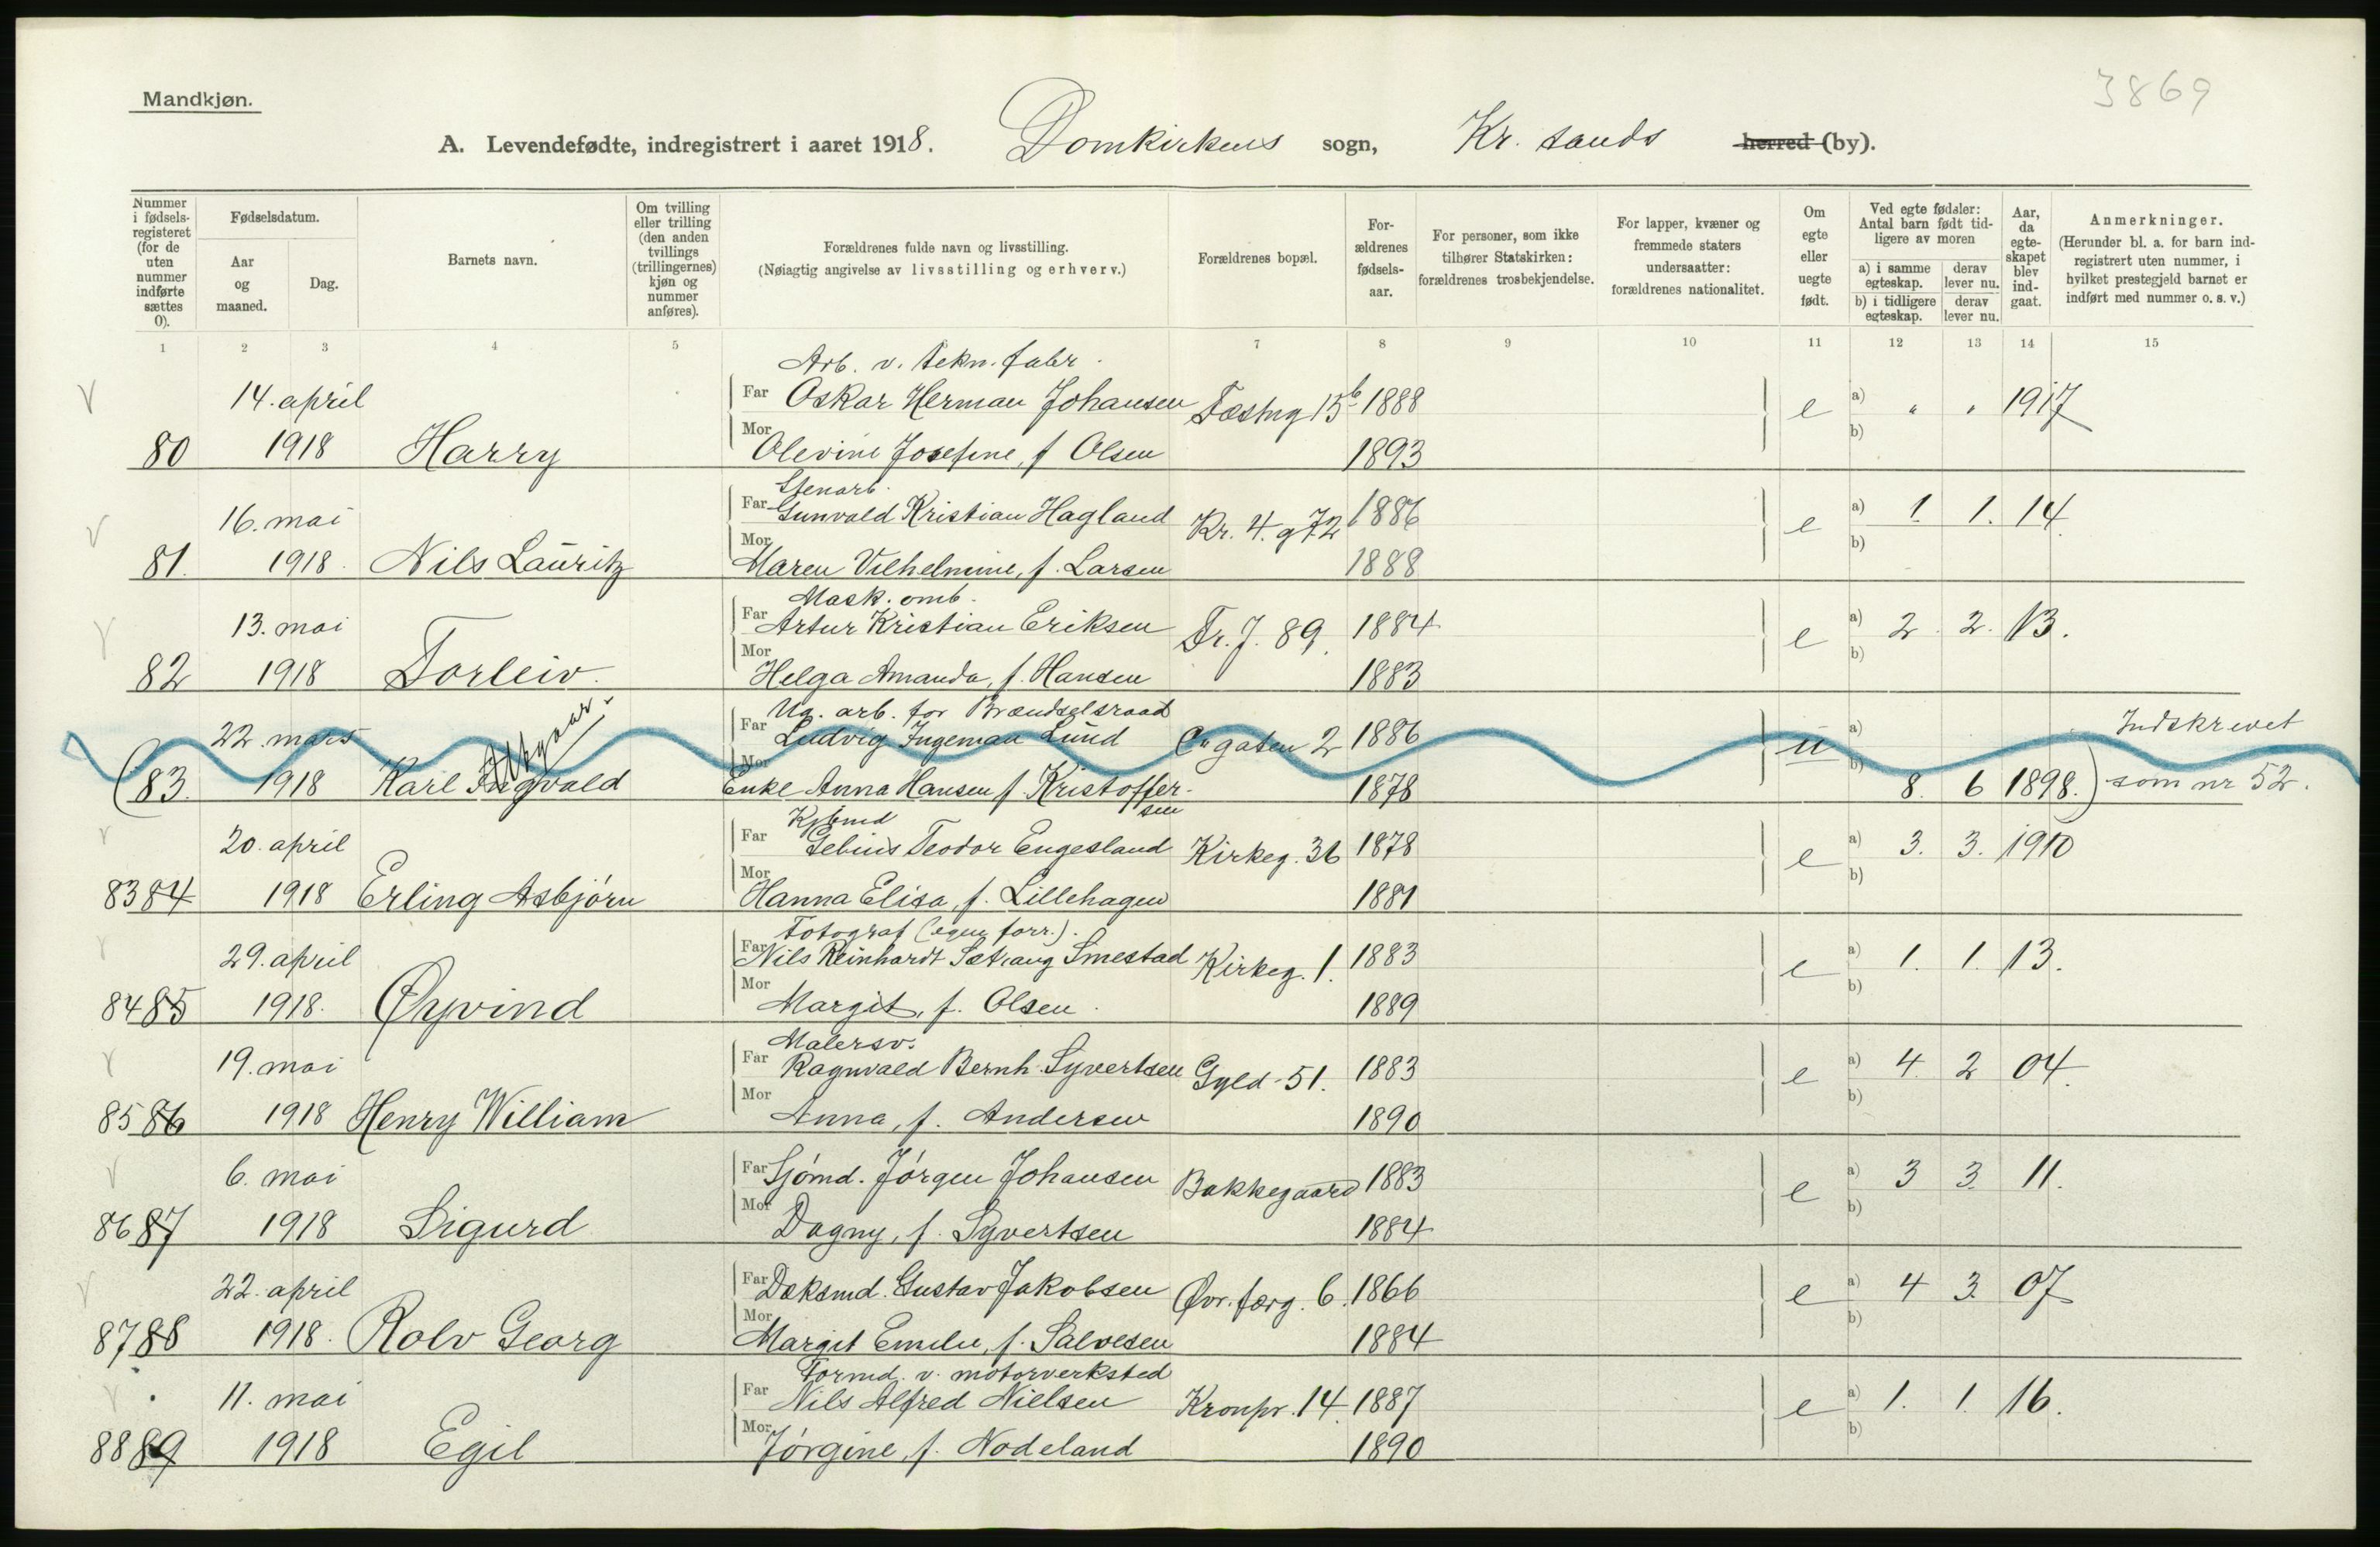 3869
Mandkjøn.
A. Levendefødte, indregistrert i aaret 1918. Domkirkens sogn, Kr. sands herred (by).
Nummer i fødsels-registeret (for de uten nummer indførte sættes 0).
Fødselsdatum.
Aar og maaned.
Dag.
Barnets navn.
Om tvilling eller trilling (den anden tvillings (trillingernes) kjøn og nummer anføres).
Forældrenes fulde navn og livsstilling.
(Nøiagtig angivelse av livsstilling og erhverv.)
Forældrenes bopæl.
For-ældrenes fødsels-aar.
For personer, som ikke tilhører Statskirken: forældrenes trosbekjendelse.
For lapper, kvæner og fremmede staters undersaatter: forældrenes nationalitet.
Om egte eller uegte født.
Ved egte fødsler: Antal barn født tid-ligere av moren
a) i samme egteskap. derav lever nu.
b) i tidligere egteskap. derav lever nu.
Aar, da egte-skapet blev ind-gaat.
Anmerkninger.
(Herunder bl. a. for barn ind-registrert uten nummer, i hvilket prestegjeld barnet er indført med nummer o. s. v.)
1 2 3 4 5 7 8 9 10 11 12 13 14 15
Arb. v. tekn. fabr.
V 14. april Far Oskar Herman Johansen Fæstng 15b 1888 e a) " " 1917
80 1918 Harry Mor Olevine Josefine, f Olsen 1893 b)
Stenarb.
V 16. mai Far Gunvald Kristian Hagland Kr. 4. g 72 1886 e a) 1 1. 14
81. 1918. Nils Lauritz Mor Maren Vilhelmine, f. Larsen 1888 b)
Mask. omb.
V 13. mai Far Artur Kristian Eriksen Tr. J. 89. 1884 e a) 2 2. 13.
82 1918 Torleiv. Mor Helga Amanda, f. Hansen 1883 b)
Ug. arb. for Brændselsraad
22. mars Far Ludvig Ingeman Lund C" gaten 2 1886 u a) Indskrevet
(83. 1918 Karl Ingvald Utgaar. Mor Enke Anna Hansen f. Kristoffer-sen 1878 b) 8. 6 1898.) som nr 52.
Kjbmd
V 20. april Far Gebius Teodor Engesland Kirkeg. 36 1878 e a) 3. 3. 1910
83 84 1918 Erling Asbjørn Mor Hanna Elisa, f. Lillehagen 1881 b)
Fotograf (egen forr.).
V 29. april Far Nils Reinhardt Smestad Kirkeg. 1. 1883 e a) 1. 1. 13.
84 85 1918. Øyvind Mor Margit, f. Olsen. 1889 b)
Malersv.
V 19. mai Far Ragnvald Bernh. Syvertsen Gyld. 51. 1883 e a) 4 2 04.
85 86 1918 Henry William Mor Anna, f. Andersen 1890 b)
V 6. mai Far Sjømd. Jørgen Johansen Bakkegaard 1883 e a) 3 3 11.
86 87 1918 Sigurd Mor Dagny, f. Syvertsen 1884 b)
V 22. april Far Dæksmd. Gustav Jakobsen Øvr. færg. 6. 1866 e a) 4 3 07
87 88 1918. Rolv Georg Mor Margit Emilie, f. Salvesen 1884 b)
Formd. v. motorverksted
V 11. mai Far Nils Alfred Nielsen Kronpr. 14. 1887 e a) 1. 1. 16.
88 89 1918 Egil Mor Jørgine, f. Nodeland 1890 b)